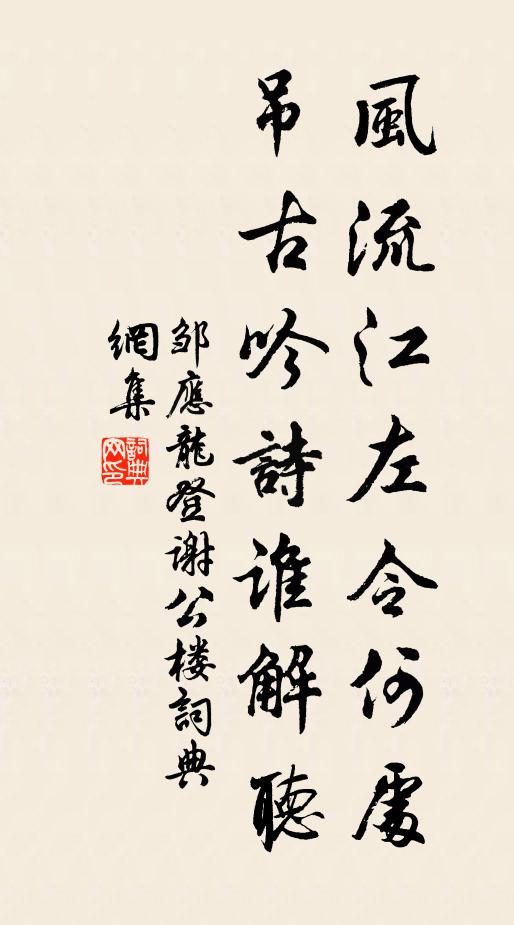 風流江左今何處
吊古吟詩誰解聽
邹應龍登谢公楼詞典
網集
詞典网印